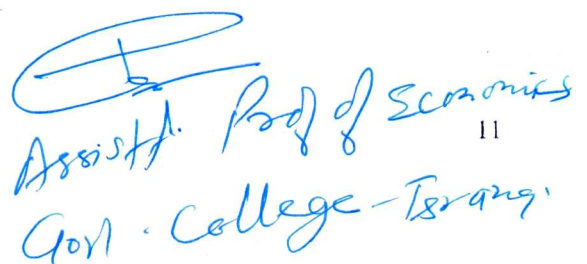 Assistt. Prof of Economics
11
Govt. College - Israna.